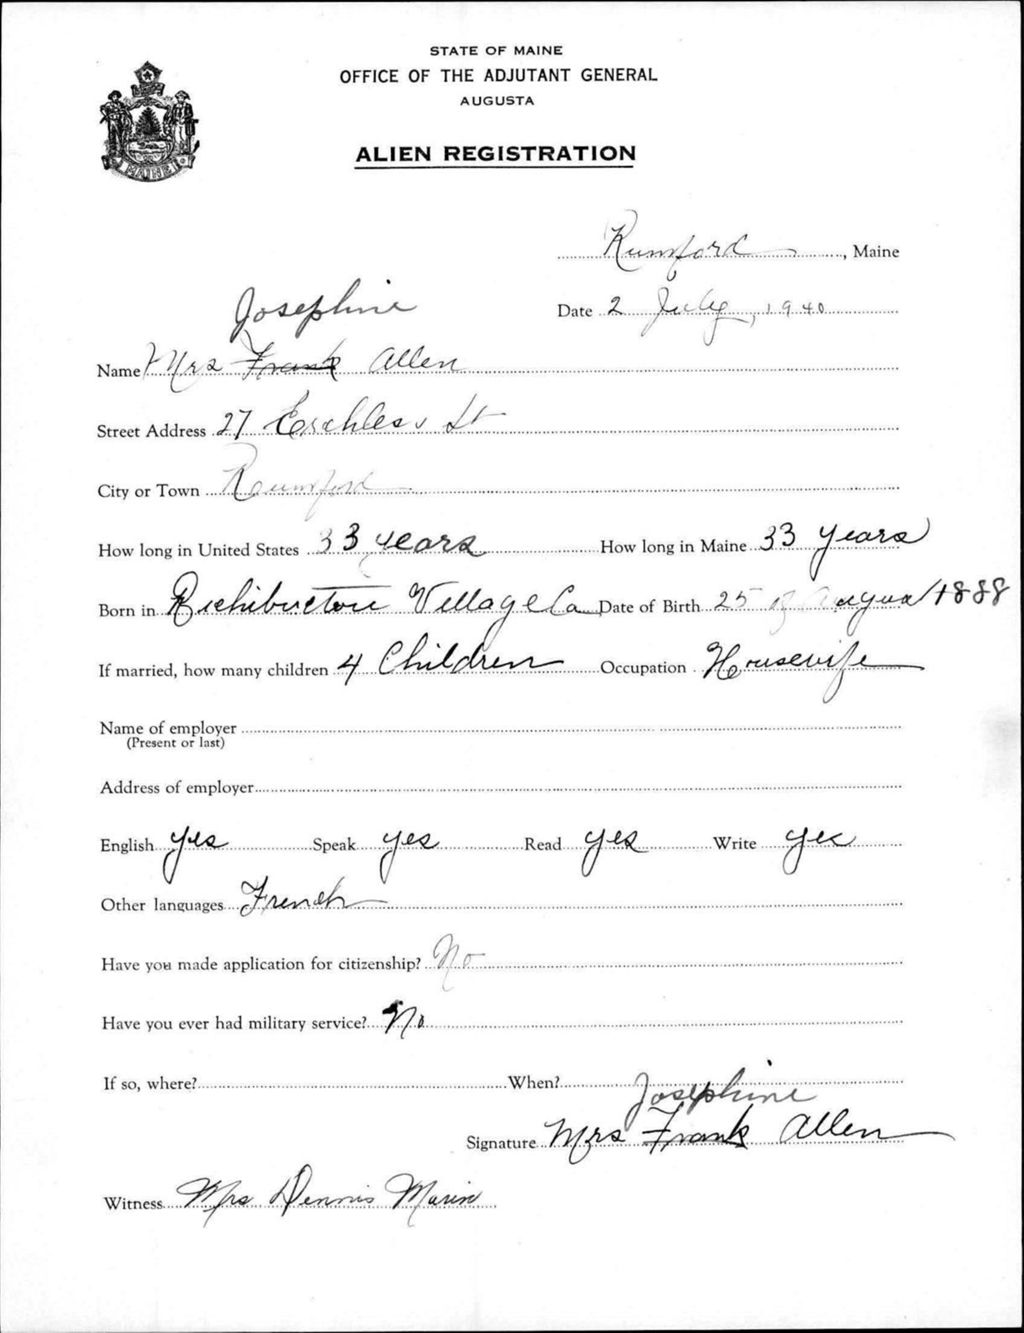 STATE OF MAINE
OFFICE OF THE ADJUTANT GENERAL
AUGUSTA
ALIEN REGISTRATION
MAINE
Rumford, Maine
Date 2 July, 1940
Josephine
Name Mrs Frank Allen
Street Address 27 Erchless St
City or Town Rumford
How long in United States 33 years How long in Maine 33 years
Born in Richibuctou Village Ca Date of Birth 25 of August 1888
If married, how many children 4 Children Occupation Housewife
Name of employer
(Present or last)
Address of employer
English yes Speak yes Read yes Write yes
Other languages French
Have you made application for citizenship? No
Have you ever had military service? No
If so, where? When?
Josephine
Signature Mrs Frank Allen
Witness Mrs. Dennis Morin